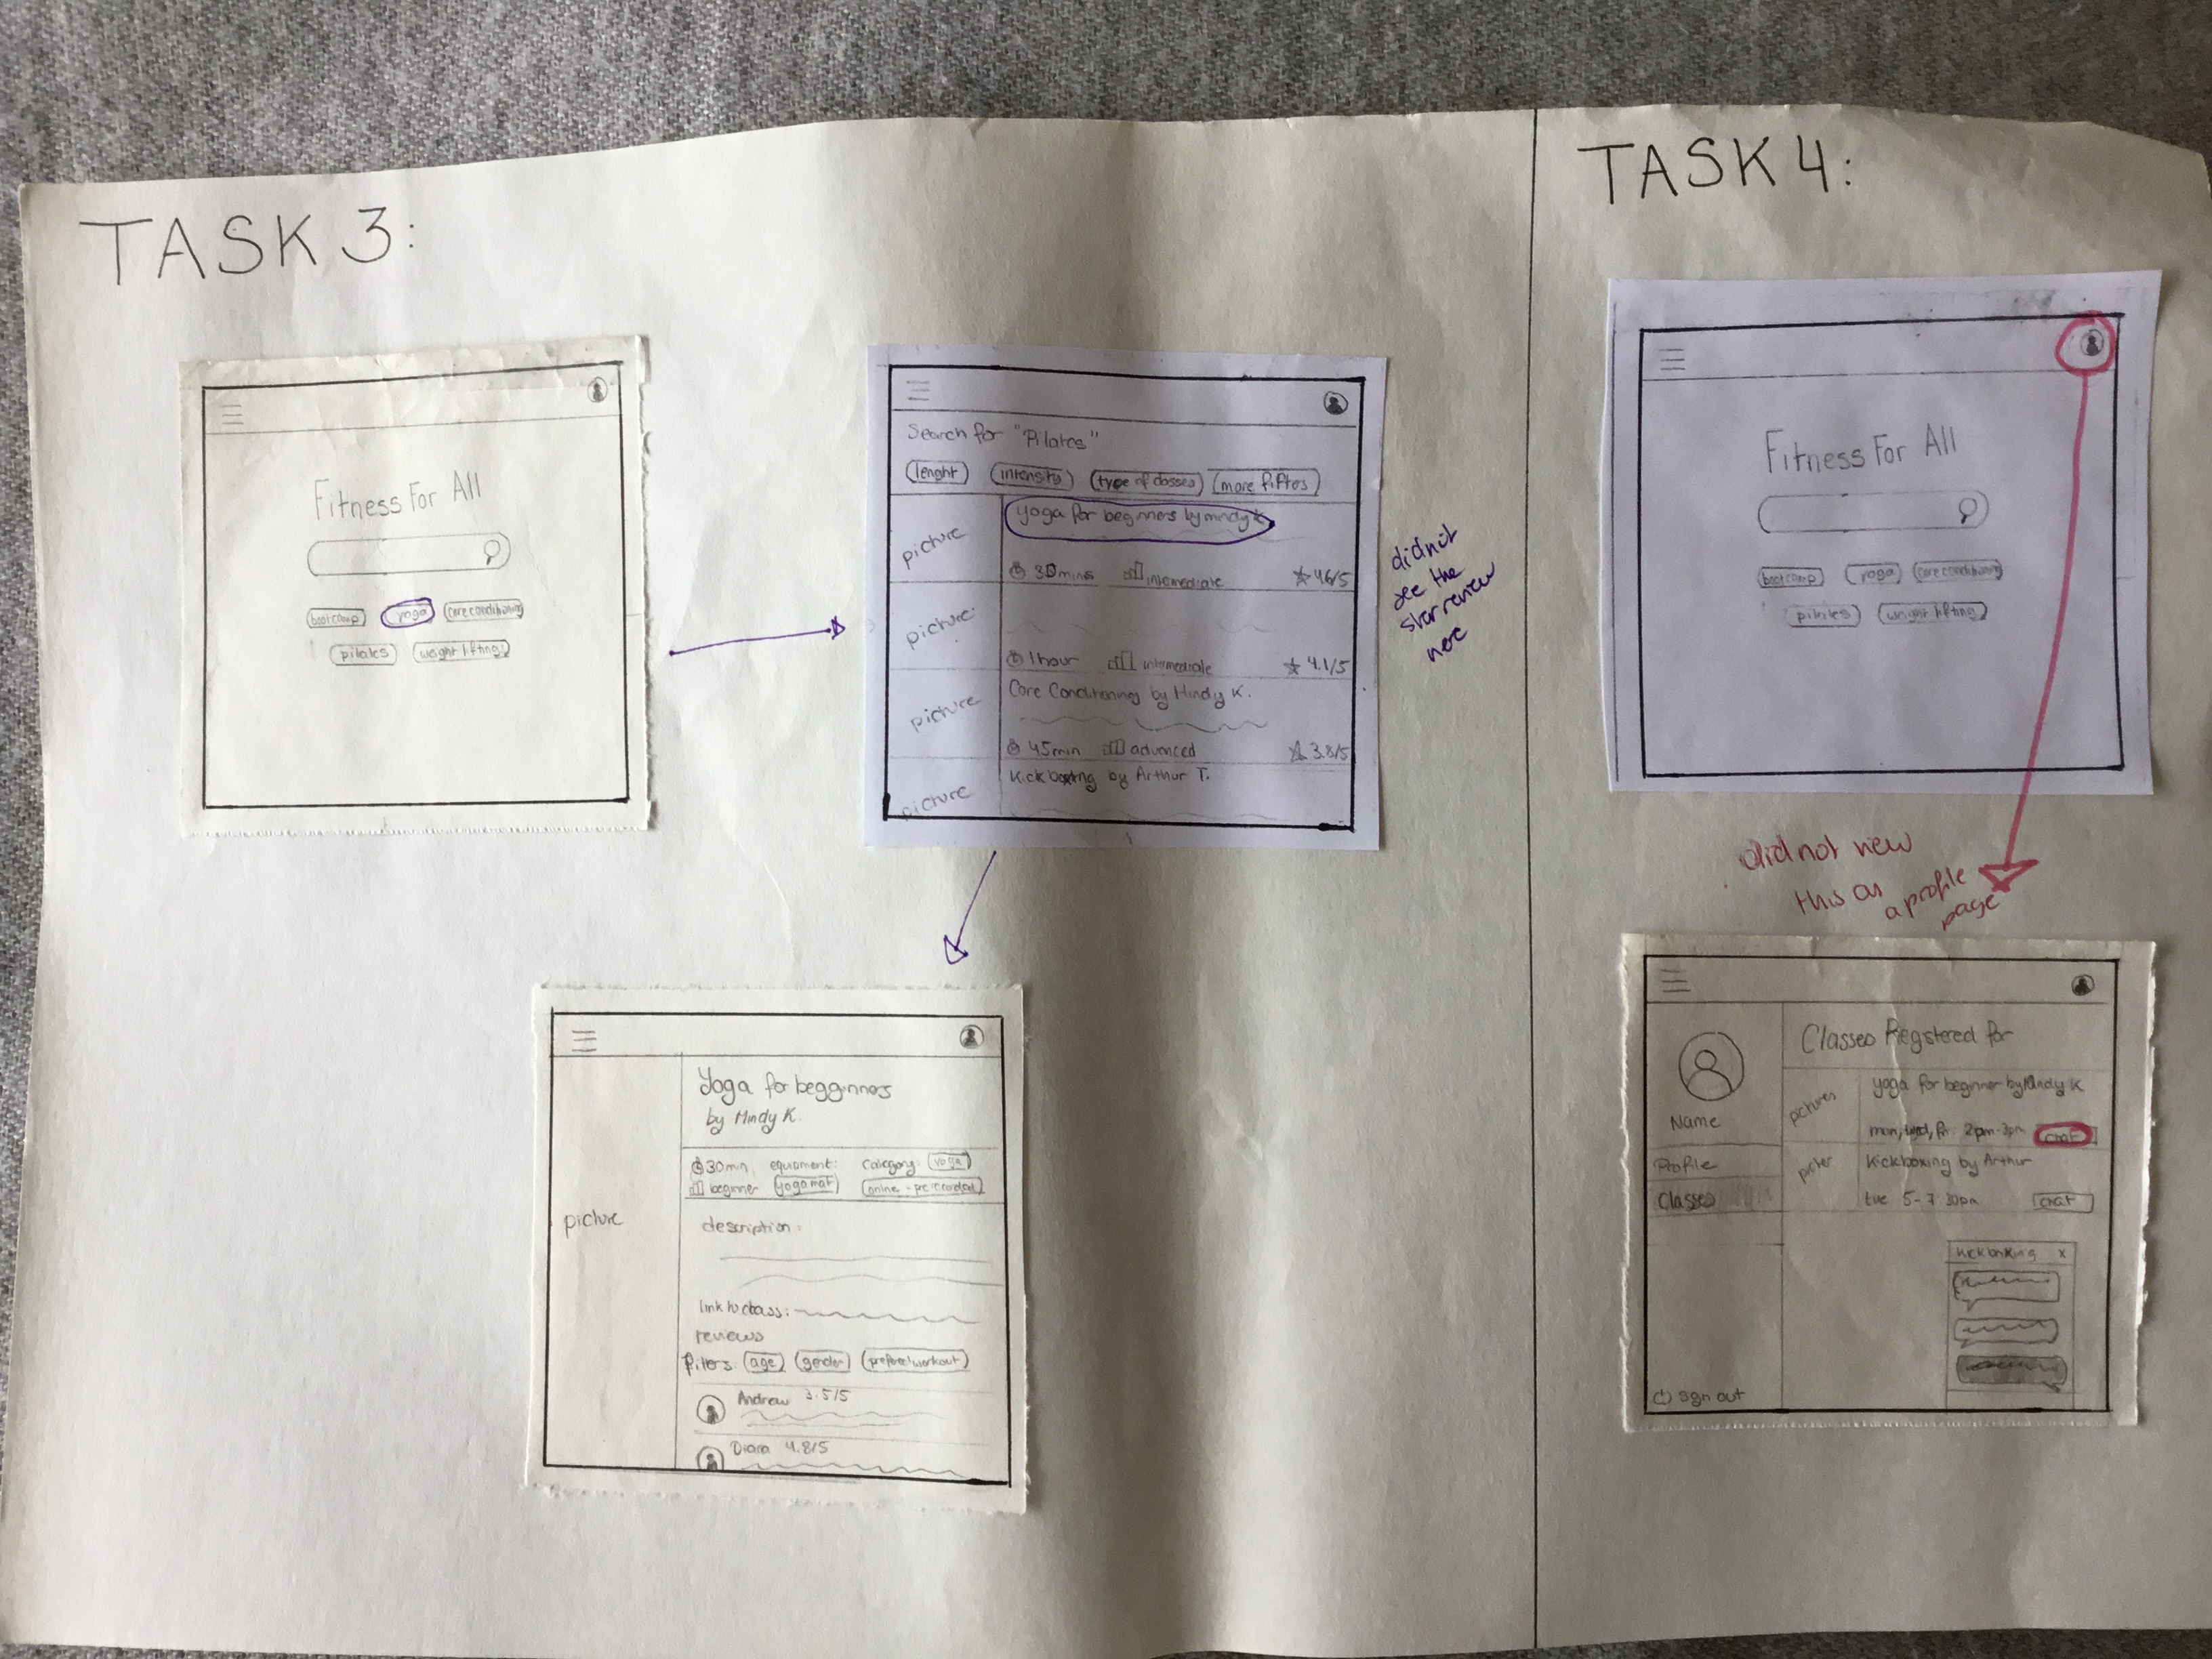 TASK 3:
Fitness For All
bootcamp
yoga
core conditioning
pilates
weight lifting
Search for "Pilates"
lenght
intensity
type of classes
more filtes
picture
yoga for beginners by mindy K
30mins
intemediate
4.6/5
picture
1hour
intemediate
4.1/5
picture
Core Conditioning by Mindy K.
45min
advanced
3.8/5
picture
Kickboxing by Arthur T.
did not
see the
star review
here
picture
Yoga for begginners
by Mindy K.
30min
equipment:
category:
yoga
beginner
yoga mat
online - pre recorded
description:
link to class:
reviews
filters:
age
gender
prefered workout
Andrew 3.5/5
Diana 4.8/5
TASK 4:
Fitness For All
bootcamp
yoga
core conditioning
pilates
weight lifting
did not view
this as
a profile
page
Name
Profile
Classes
sign out
Classes Registered for
pictures
yoga for beginner by Mindy K
mon, wed, fri 2pm-3pm
chat
Kickboxing by Arthur
tue 5-7 30pm
chat
kickboxing x